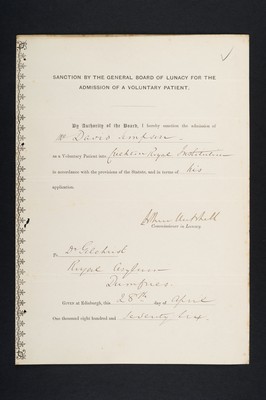 SANCTION BY THE GENERAL BOARD OF LUNACY FOR THE
ADMISSION OF A VOLUNTARY PATIENT.
By Authority of the Board, I hereby sanction the admission of
Mr David
as a Voluntary Patient into Crichton Royal Institution
in accordance with the provisions of the Statute, and in terms of his
application.
Commissioner in Lunacy.
To Dr Gilchrist
Royal Asylum
Dumfries.
GIVEN at Edinburgh, this 28th day of April
One thousand eight hundred and Seventy Six